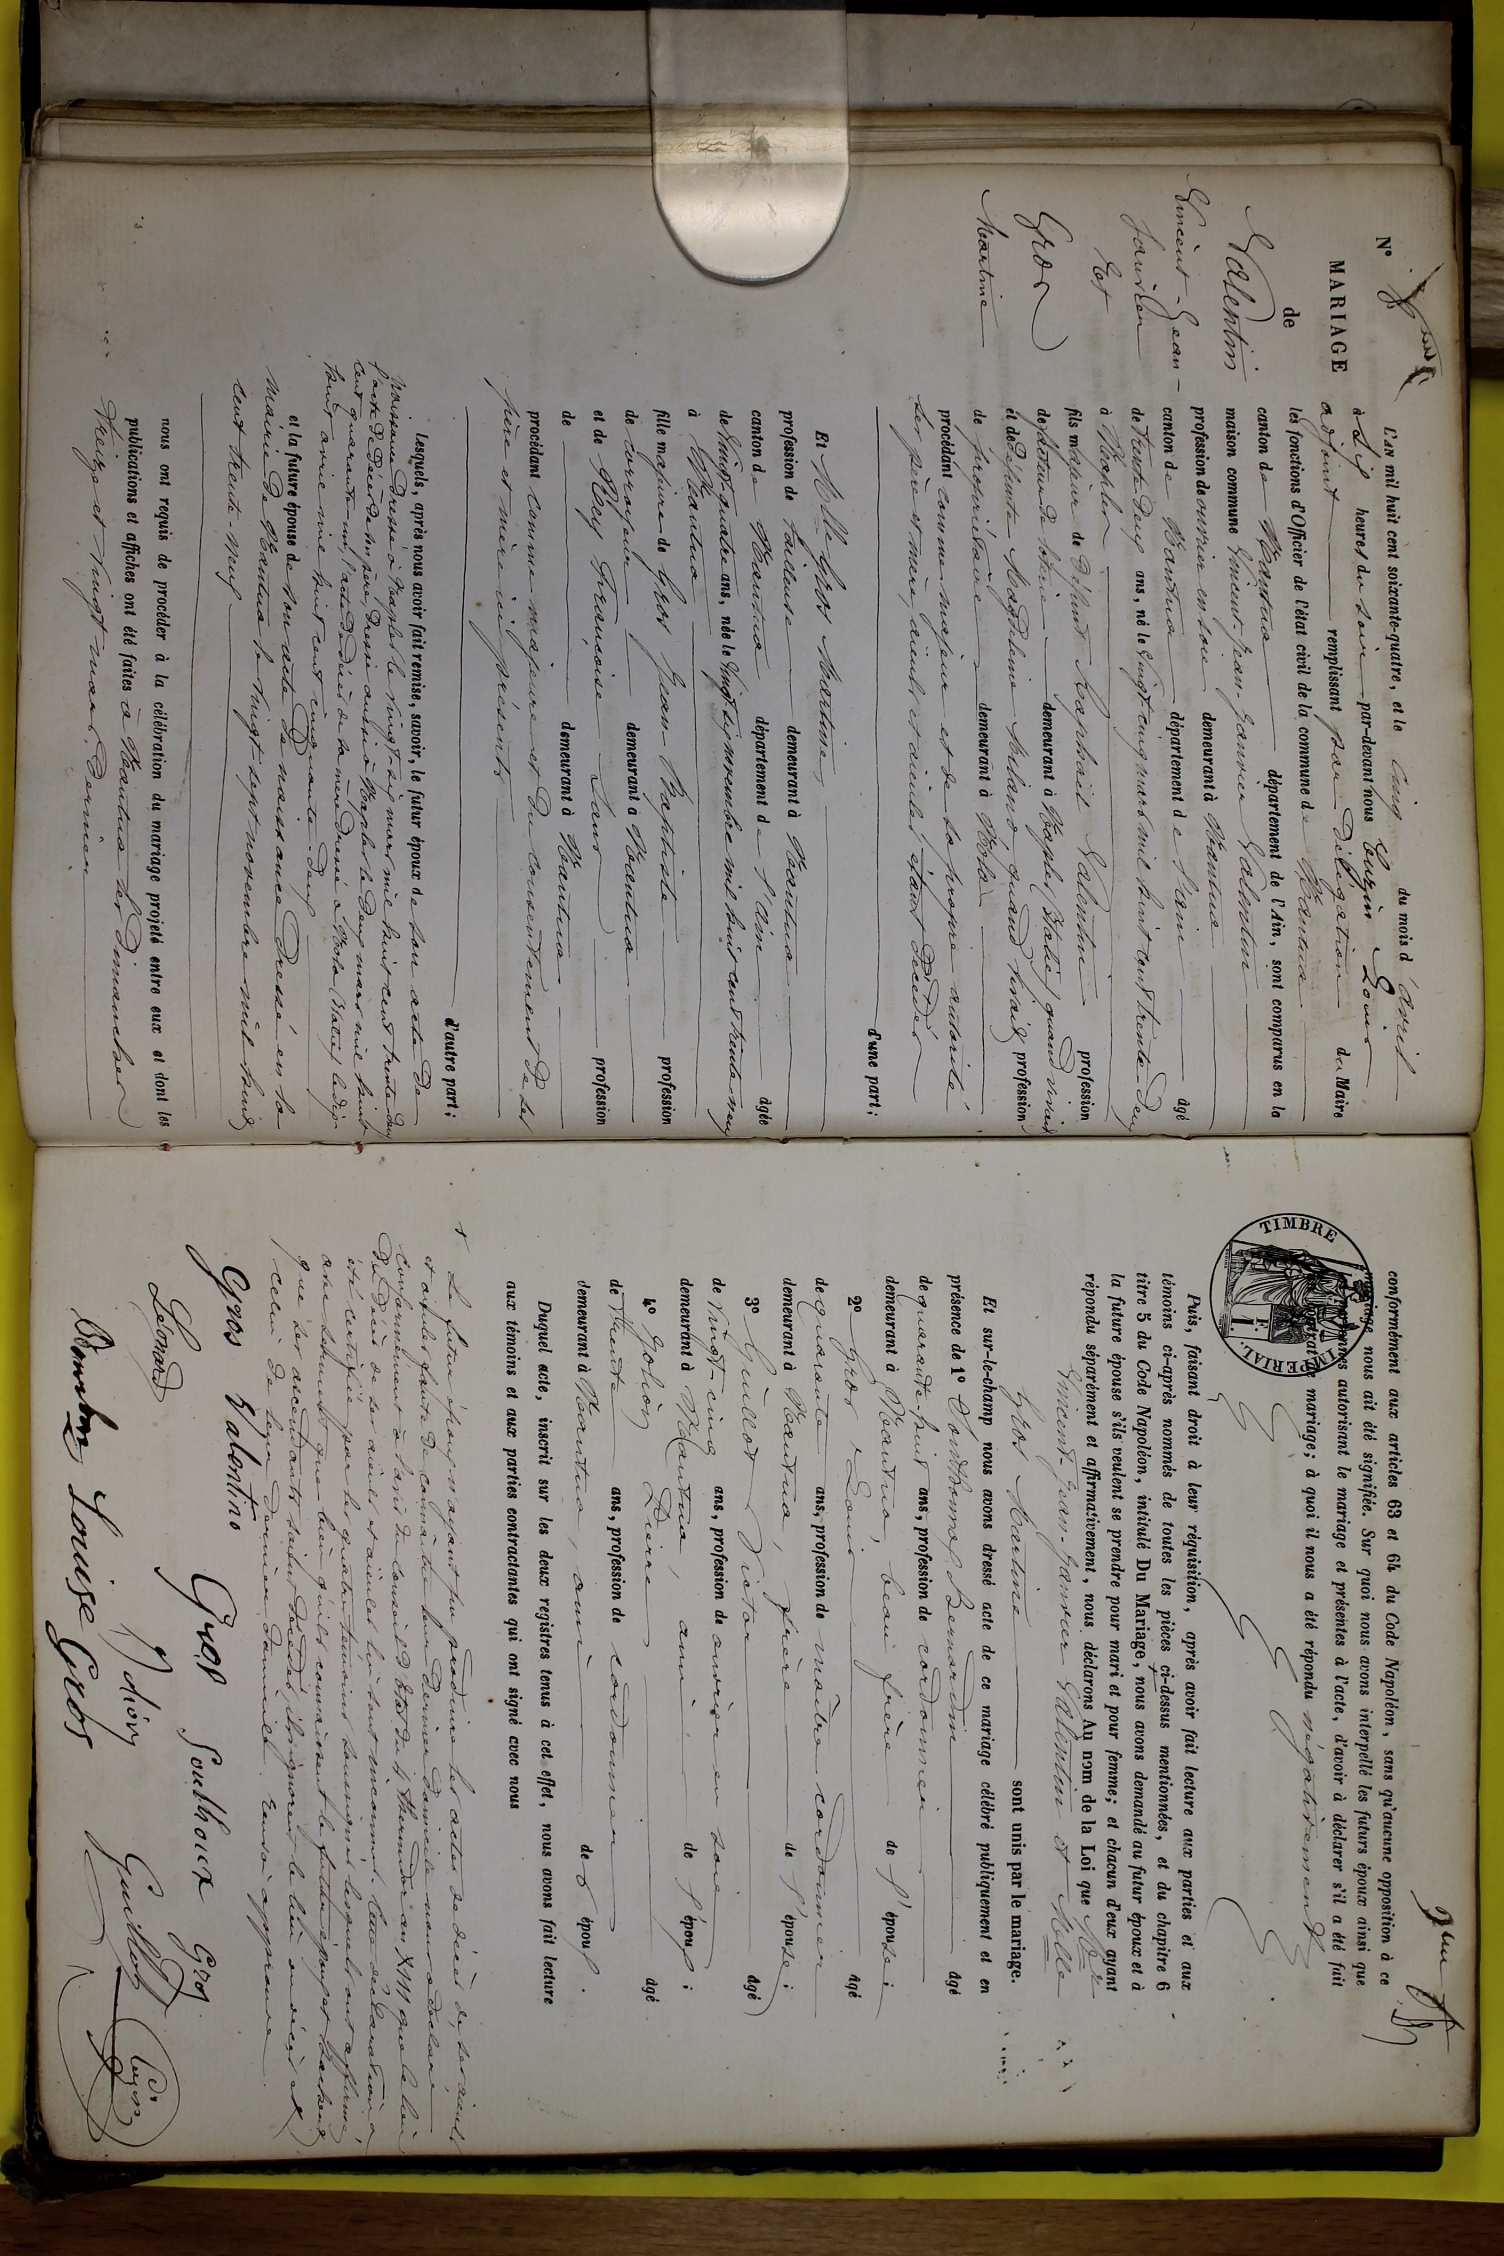 N° 8
MARIAGE
de
Valentin
Vincent-Jean-
Janvier
Et
Gros
Martine
L'an mil huit cent soixante-quatre, et le cinq du mois d'avril
à six heures du soir par-devant nous Cuzin Louis
adjoint remplissant par Délégation du Maire
les fonctions d'Officier de l'état civil de la commune de Nantua
canton de Nantua département de l'Ain, sont comparus en la
maison commune Vincent-Jean-Janvier Valentin
profession de ouvrier en soie demeurant à Nantua
canton de Nantua département de l'ain âgé
de trente deux ans, né le vingt cinq mars mil huit cent trente-deux
à Naples
fils majeur de défunt Raphaël Valentin profession
demeurant à Naples (Italie) quand vivait
et de défunte Magdeleine Milano, quand vivait profession
de propriétaire demeurant à Nola
procédant comme majeur et de sa propre autorité
ses père et mère, aïeuls et aïeules étant décédés
d'une part;
Et Mlle Gros Martine,
profession de tailleuse demeurant à Nantua
canton de Nantua département de l'Ain âgée
de vingt-quatre ans, née le vingt six novembre mil huit cent trente-neuf
à Nantua
fille majeure de Gros Jean Baptiste profession
de corroyeur demeurant à Nantua
et de Rey Françoise Sans profession
de demeurant à Nantua
procédant comme majeure et du consentement de ses
père et mère ici présents
d'autre part;
Lesquels, après nous avoir fait remise, savoir, le futur époux de son acte de
naissance dressé à Naples le vingt-six mars mil huit cent trente deux
l'acte de décès de son père, dressé aussi à Naples le deux mars mil huit
cent quarante-un, l'acte de décès de sa mère dressé à Nola (Italie) le dix
huit avril mil huit cent cinquante-deux
et la future épouse de son acte de naissance dressé en la
mairie de Nantua le vingt sept novembre mil huit
cent trente-neuf
nous ont requis de procéder à la célébration du mariage projeté entre eux et dont les
publications et affiches ont été faites à Nantua les Dimanches
treize et vingt mars dernier
conformément aux articles 63 et 64 du Code Napoléon, sans qu'aucune opposition à ce
mariage nous ait été signifiée. Sur quoi nous avons interpellé les futurs époux ainsi que
les personnes autorisant le mariage et présentes à l'acte, d'avoir à déclarer s'il a été fait
contrat de mariage; à quoi il nous a été répondu négativement
TIMBRE IMPERIAL
1 F.
Puis, faisant droit à leur réquisition, après avoir fait lecture aux parties et aux
témoins ci-après nommés de toutes les pièces ci-dessus mentionnées, et du chapitre 6
titre 5 du Code Napoléon, intitulé Du Mariage, nous avons demandé au futur époux et à
la future épouse s'ils veulent se prendre pour mari et pour femme; et chacun d'eux ayant
répondu séparément et affirmativement, nous déclarons Au nom de la Loi que Mr
Vincent-Jean-Janvier Valentin et Melle
Gros Martine sont unis par le mariage.
Et sur-le-champ nous avons dressé acte de ce mariage célébré publiquement et en
présence de 1° Bernardin âgé
de quarante-huit ans, profession de cordonnier
demeurant à Nantua, beau frère de l'épouse;
2° Gros Louis âgé
de quarante ans, profession de maître cordonnier
demeurant à Nantua, frère de l'épouse;
3° Guillot Victor âgé
de vingt-cinq ans, profession de ouvrier en soie
demeurant à Nantua, ami de l'époux;
4° Pierre âgé
de trente ans, profession de cordonnier
demeurant à Nantua, ami de l'époux.
Duquel acte, inscrit sur les deux registres tenus à cet effet, nous avons fait lecture
aux témoins et aux parties contractantes qui ont signé avec nous
Le futur époux n'ayant pu produire les actes de décès de ses aïeuls
et aïeules faute de connaître leur dernier domicile nous a déclaré
conformément à l'avis du conseil d'état du 4 thermidor an XIII que le lieu
du décès de ses aïeuls et aïeules lui sont inconnus. Cette déclaration a
été certifiée par les quatre témoins soussignés lesquels ont affirmé,
avec serment que bien qu'ils connaissent le futur époux et sachent
que ses ascendants soient décédés, ils ignorent le lieu du décès et
celui de leur dernier domicile. renvoi approuvé
Gros Valentino Gros Gros
Léonard Guillot
Louise Gros
Cuzin